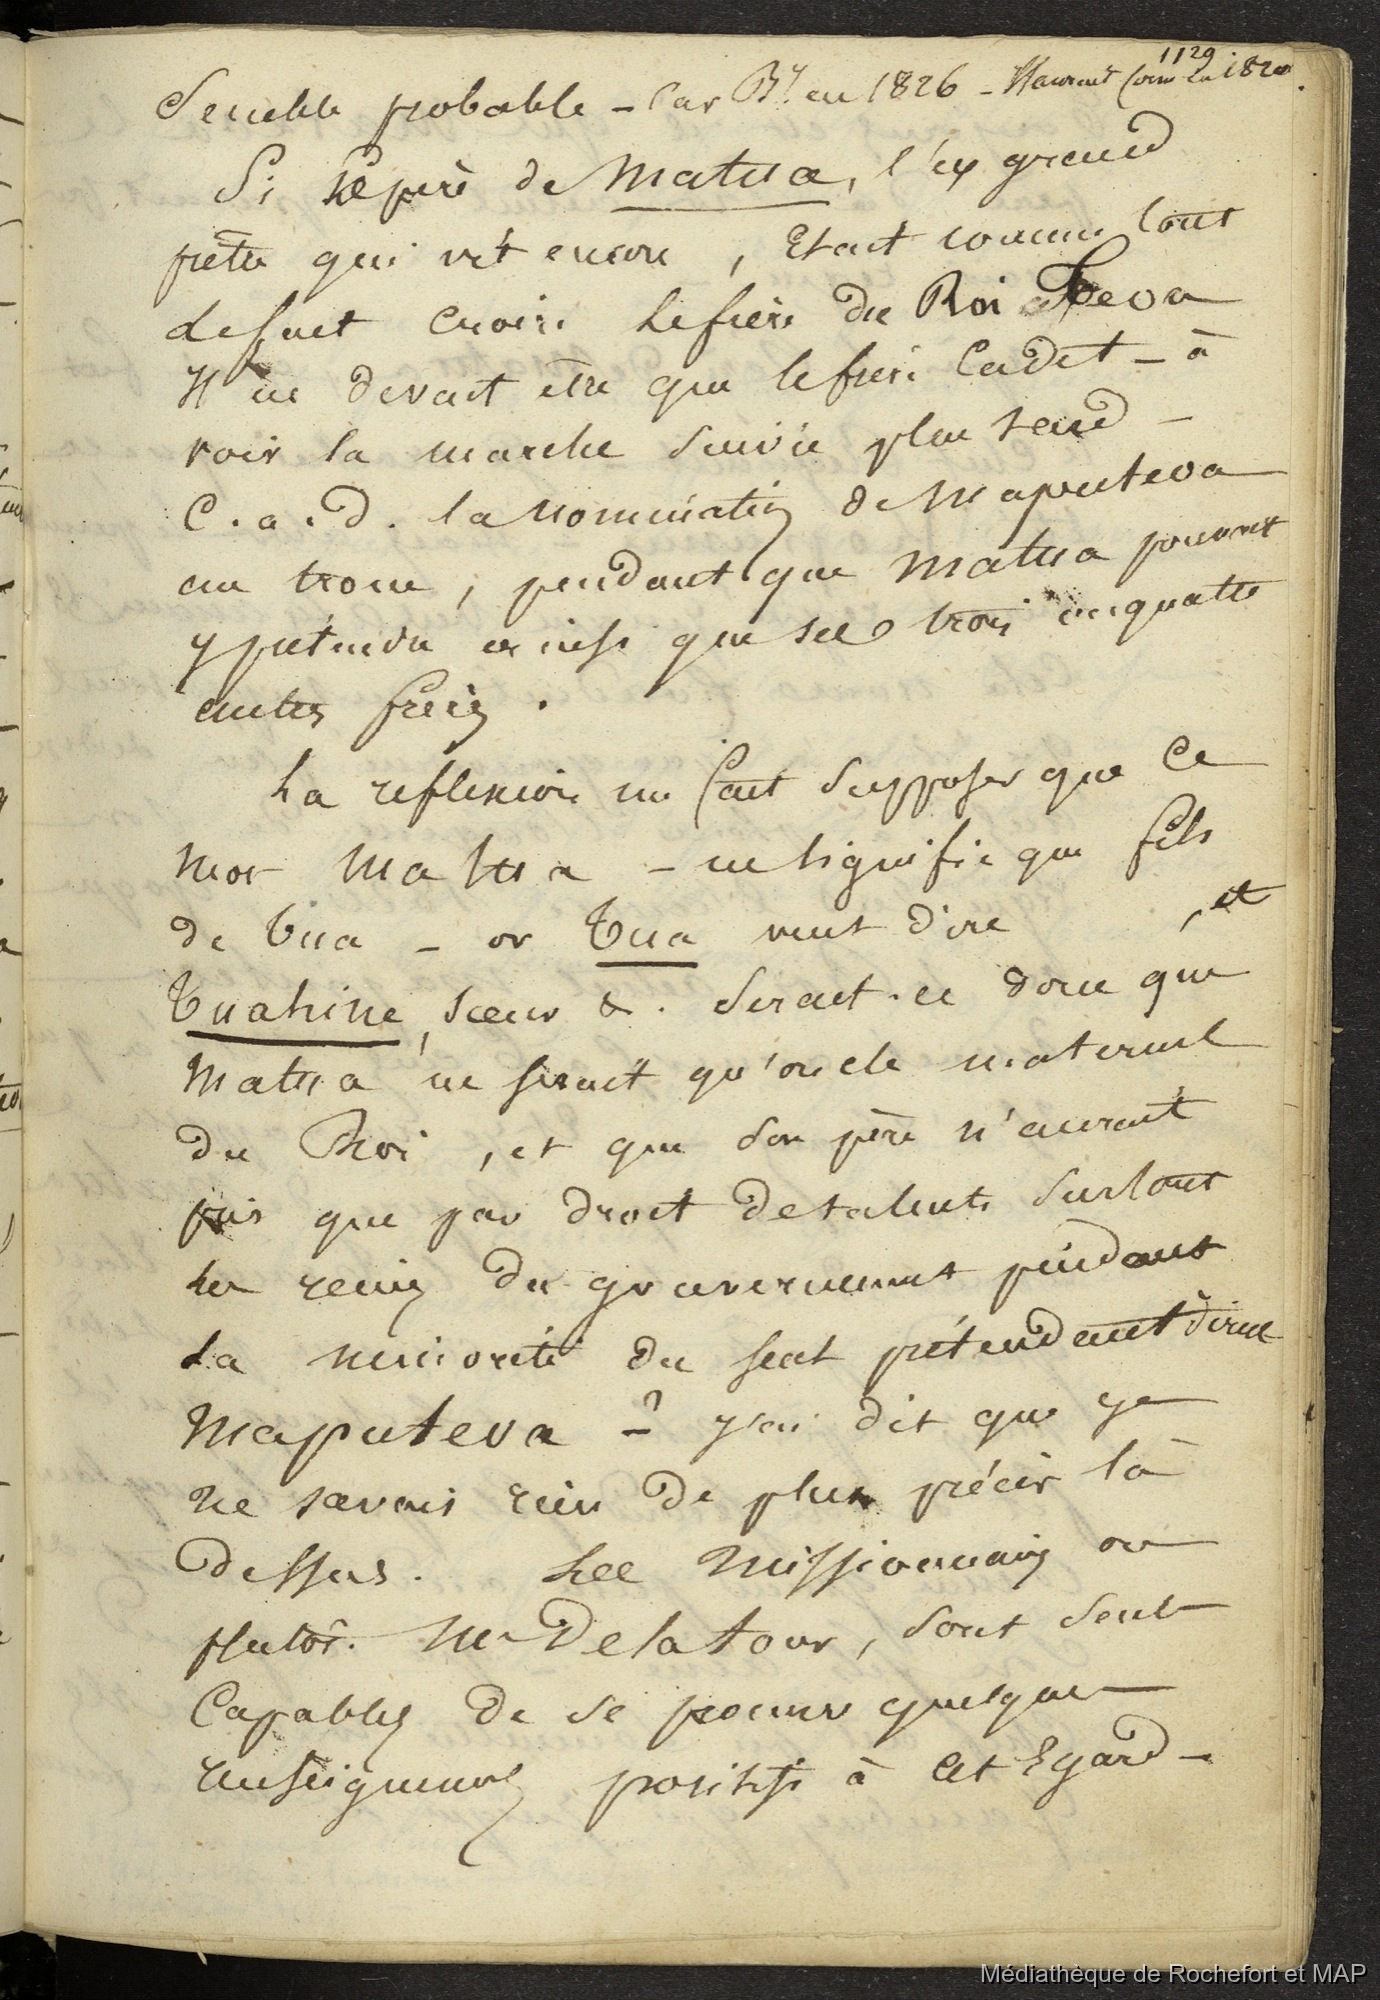 1129
Semble probable - Car By. en 1826 - en 182
Si le père de Matua, l'ex grand
prêtre qui vit encore, Etait comme tout
le fait croire le frère du Roi Teoa
Il ne devait être que le frère Cadet - à
voir la marche suivie plus tard -
C. a. d. la nomination de Maputeoa
au trone, pendant que Matua pouvait
y prétendre ainsi que ses trois ou quatre
autres frères.
La reflexion me fait supposer que ce
mot Matua - ne signifie que fils
de Tua - or Tua veut dire , et
Tuahine, sœur &. Serait-ce donc que
Matua ne serait qu'oncle maternel
du Roi, et que son père n'aurait
pris que par droit de talents surtout
les reines du gouvernement pendant
La minorité du seul prétendant direct
Maputeoa - ? j'ai dit que je
ne savais rien de plus précis là
dessus. Les Missionnaires ou
plutôt. Mr De la tour, sont seuls
Capables de se procurer quelques
renseignements positifs à cet Egard -
Médiathèque de Rochefort et MAP